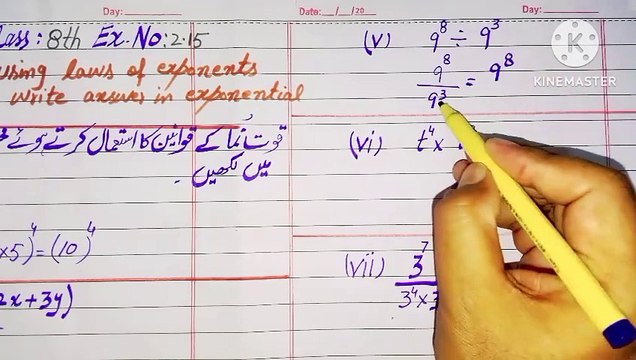 Day: Date: / /20 Day:
lass: 8th Ex.No: 2.15
using laws of exponents
write answer in exponential
قوت نُما کے قوانین کا استعمال کرتے ہوئے
میں لکھیں ۔
x5)⁴ = (10)⁴
2x + 3y)
(v) 9⁸ ÷ 9³
9⁸/9³ = 9⁸
(vi) t⁴ x
(vii) 3⁷/3⁴x3
KINEMASTER